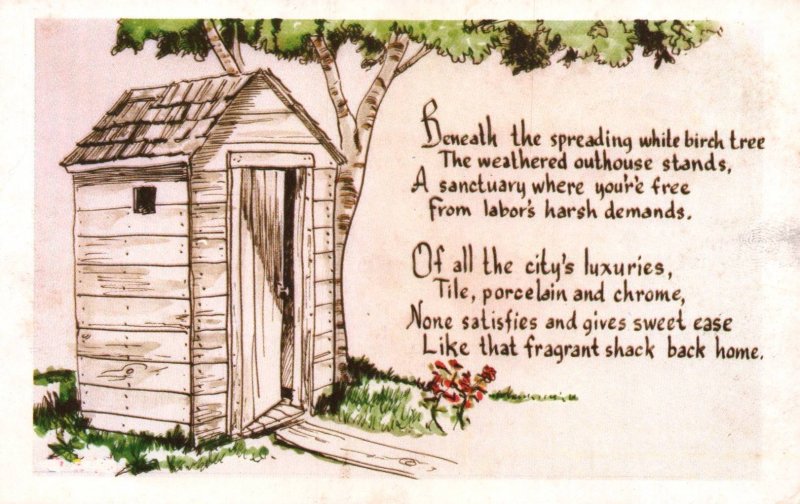 Beneath the spreading white birch tree
The weathered outhouse stands,
A sanctuary where your'e free
From labor's harsh demands.
Of all the city's luxuries,
Tile, porcelain and chrome,
None satisfies and gives sweet ease
Like that fragrant shack back home.